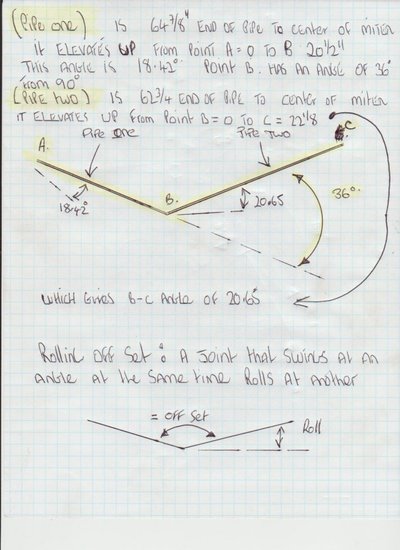 (Pipe one) IS 64 3/8" END OF PIPE TO CENTER OF MITER
IT ELEVATES UP FROM POINT A = 0 TO B 20 1/2"
THIS ANGLE IS 18.42° POINT B. HAS AN ANGLE OF 36°
FROM 90°
(PIPE TWO) IS 62 3/4 END OF PIPE TO CENTER OF MITER
IT ELEVATES UP FROM POINT B = 0 TO C = 22 1/8
A. PIPE ONE PIPE TWO C
B.
18.42° 20.65 36°
WHICH GIVES B-C ANGLE OF 20.65
Rolling OFF Set : A JOINT that SWINGS AT AN
ANGLE AT the SAME time Rolls At Another
= OFF Set
Roll